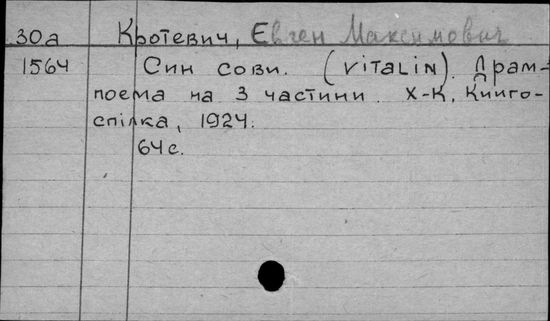 30а Кротевич, Євген Максимович
1564 Син сови. (VITALIN). Драм-
поема на 3 частини. Х-К, Книго-
спілка, 1924.
64с.